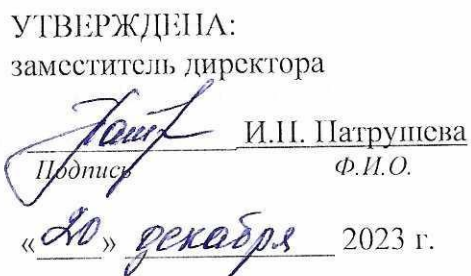 УТВЕРЖДЕНА:
заместитель директора
И.Н. Патрушева
Подпись Ф.И.О.
«20» декабря 2023 г.